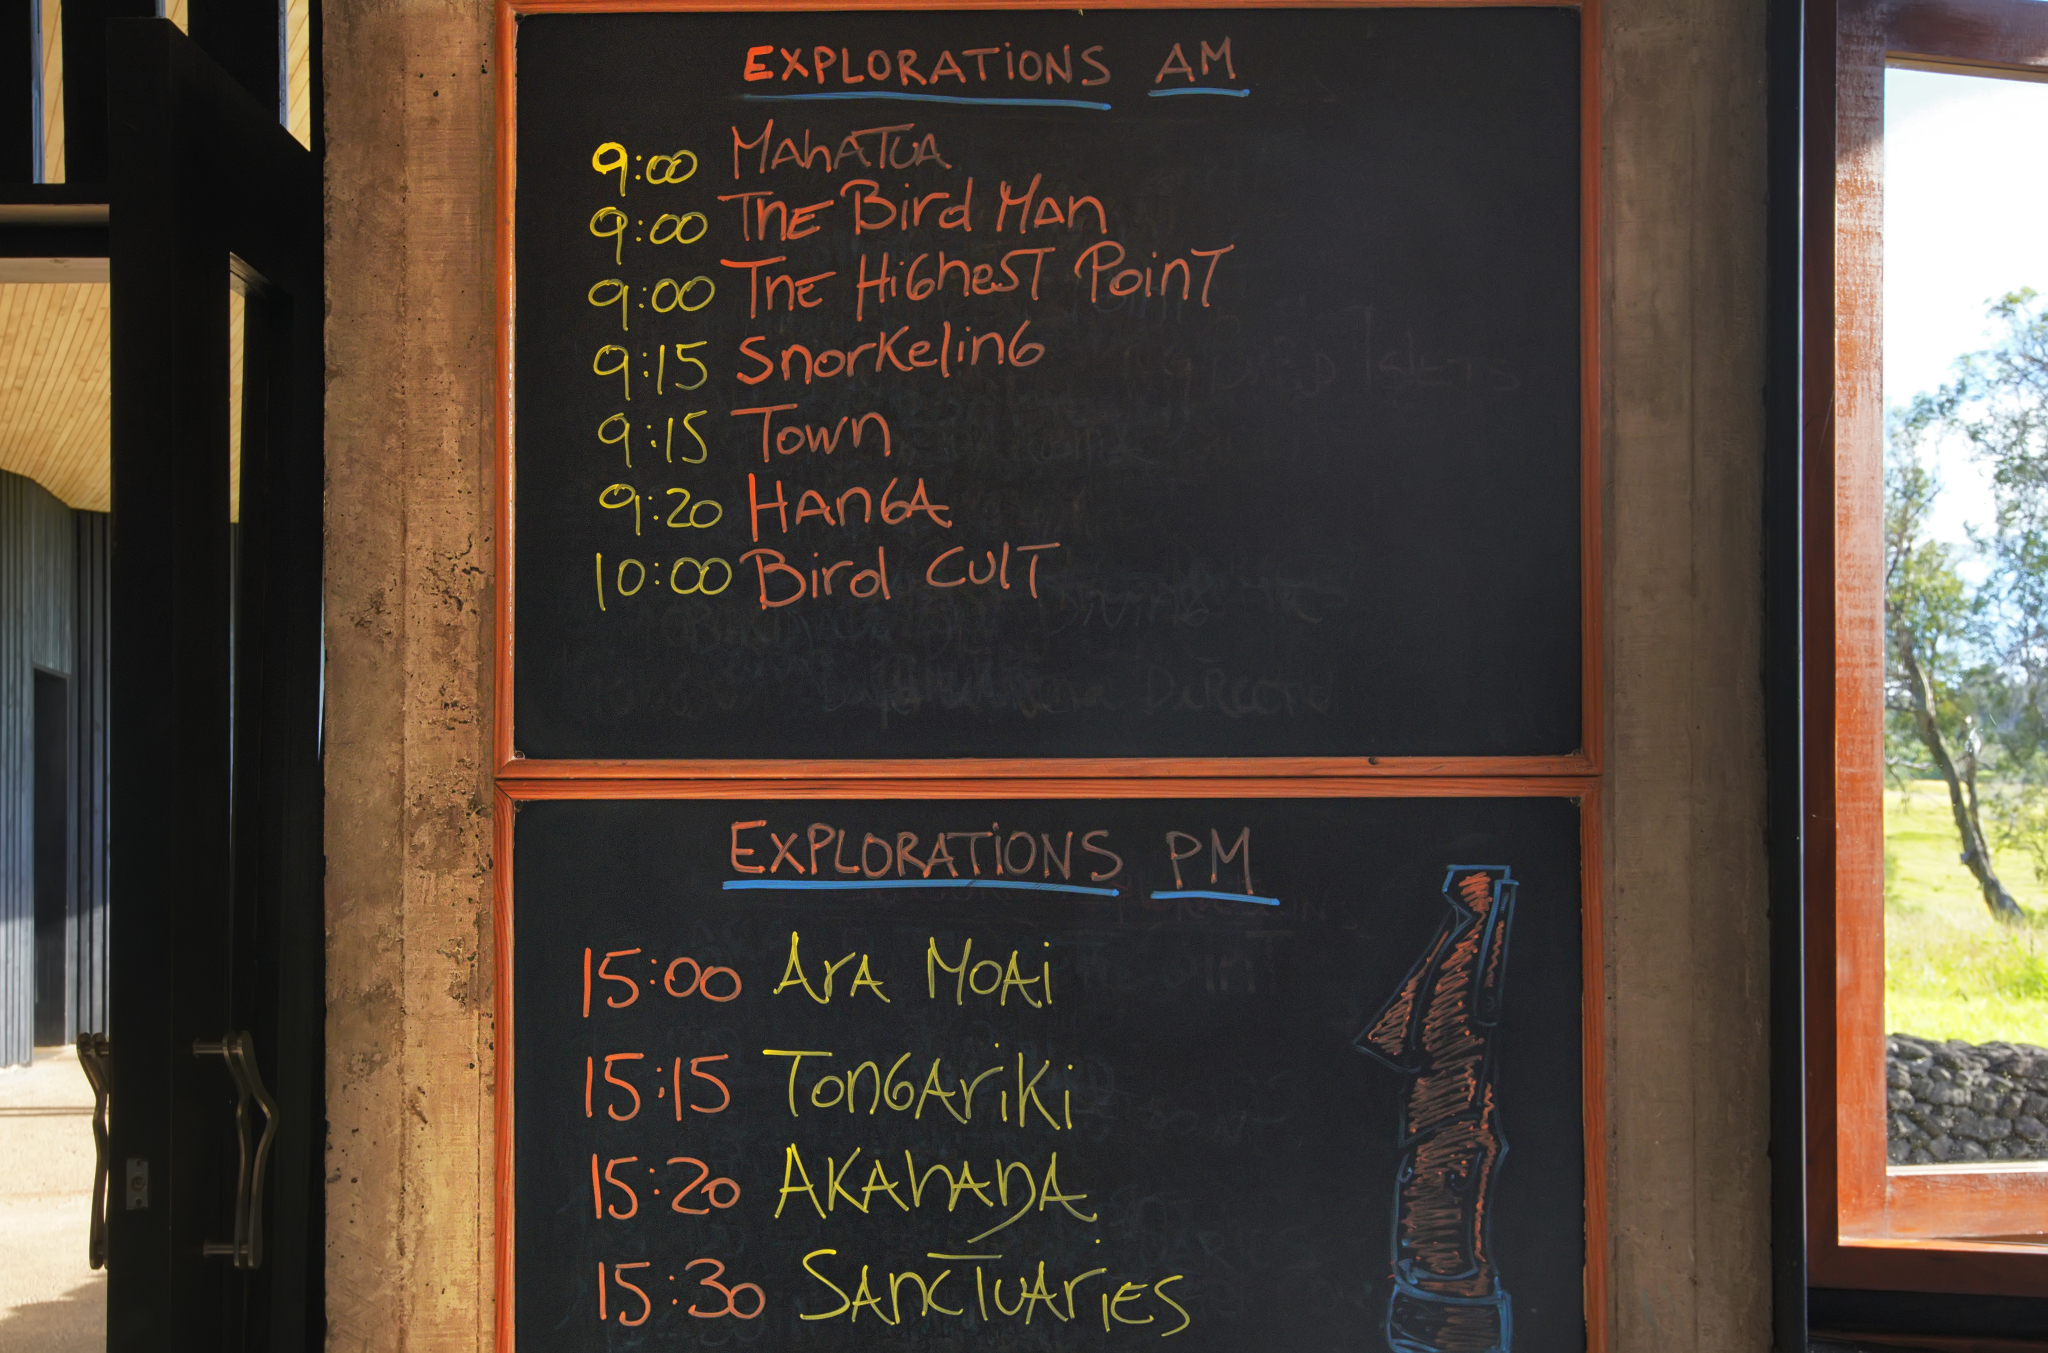 EXPLORATIONS AM
9:00 MAHATUA
9:00 THE Bird MAN
9:00 THE HiGHEST POinT
9:15 SnorKelinG
9:15 Town
9:20 HANGA
10:00 Bird CULT
EXPLORATIONS PM
15:00 ArA MOAi
15:15 TonGAriKi
15:20 AKAHANGA
15:30 SAnCTUAriES